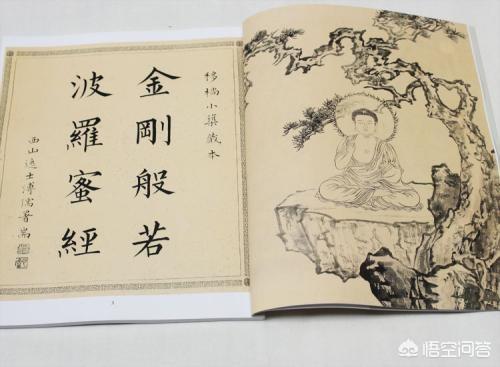 小築藏本
金剛般若
波羅蜜經
西山逸士溥儒署耑
3
悟空问答